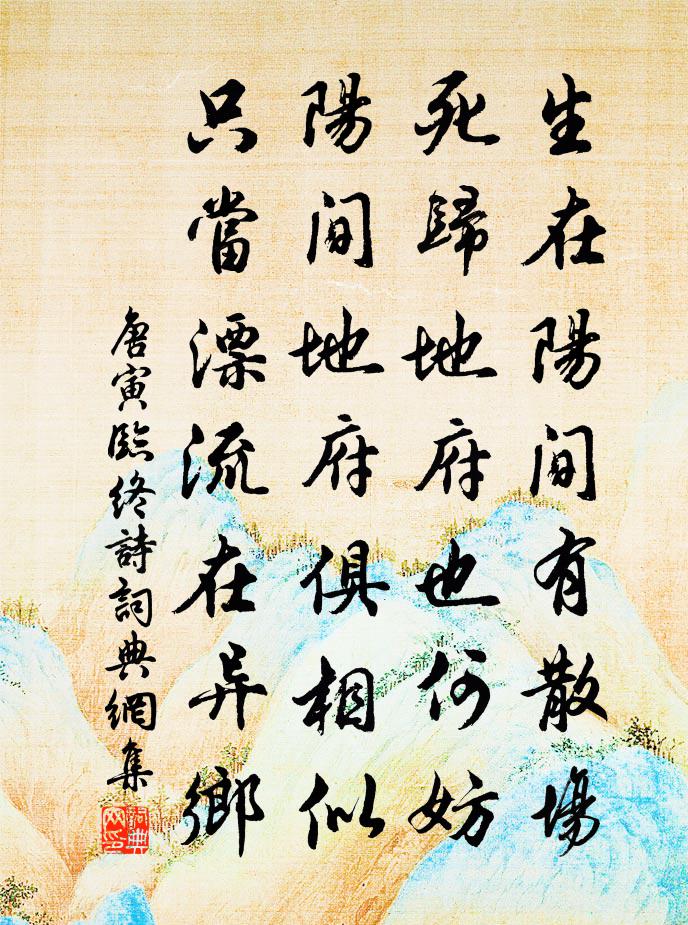 生在陽間有散場
死歸地府也何妨
陽間地府俱相似
只當漂流在异鄉
唐寅臨終詩詞典網集
詞典网印